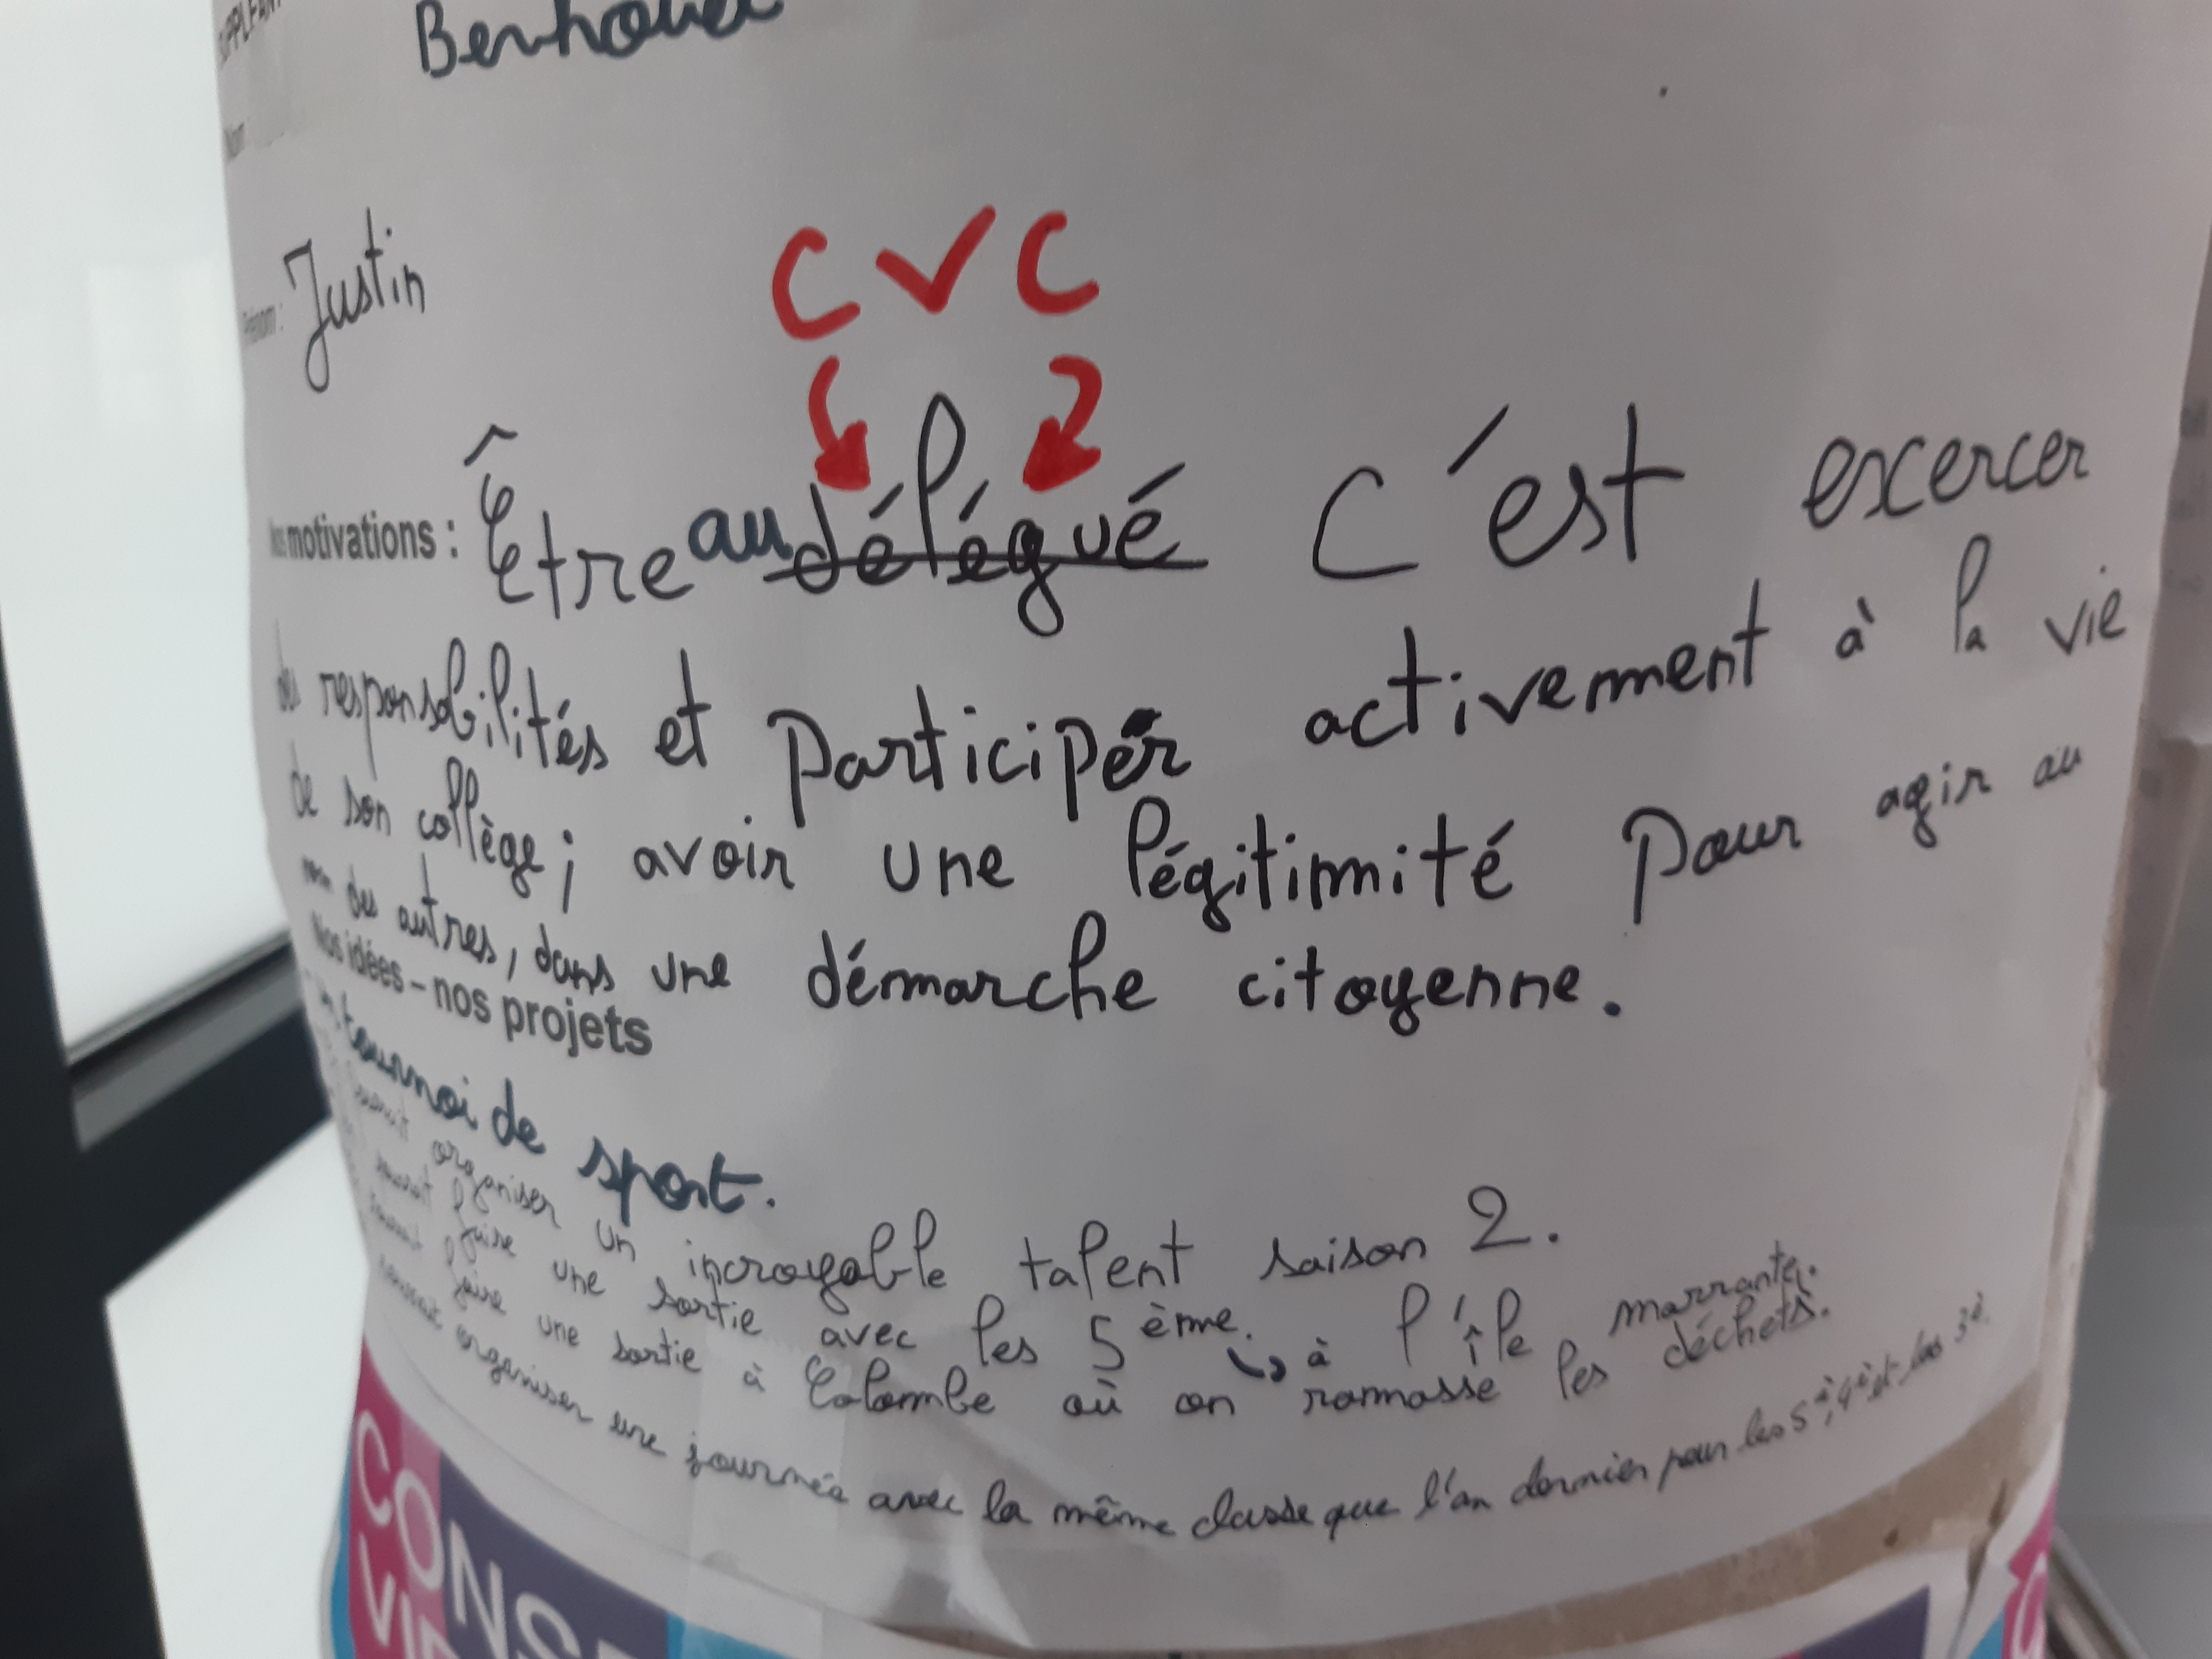 SUPPLÉANT
Nom
Prénom : Justin
CVC
Nos motivations : Être au délégué c'est excercer
des responsabilités et participer activement à la vie
de son collège ; avoir une légitimité pour agir au
nom des autres, dans une démarche citoyenne.
Nos idées – nos projets
tournoi de sport.
organiser un incroyable talent saison 2.
faire une sortie avec les 5ème. à l'île marrante.
faire une sortie à Colombe où on ramasse les déchets.
organiser une journée avec la même classe que l'an dernier pour les 5è, 4è et les 3è.